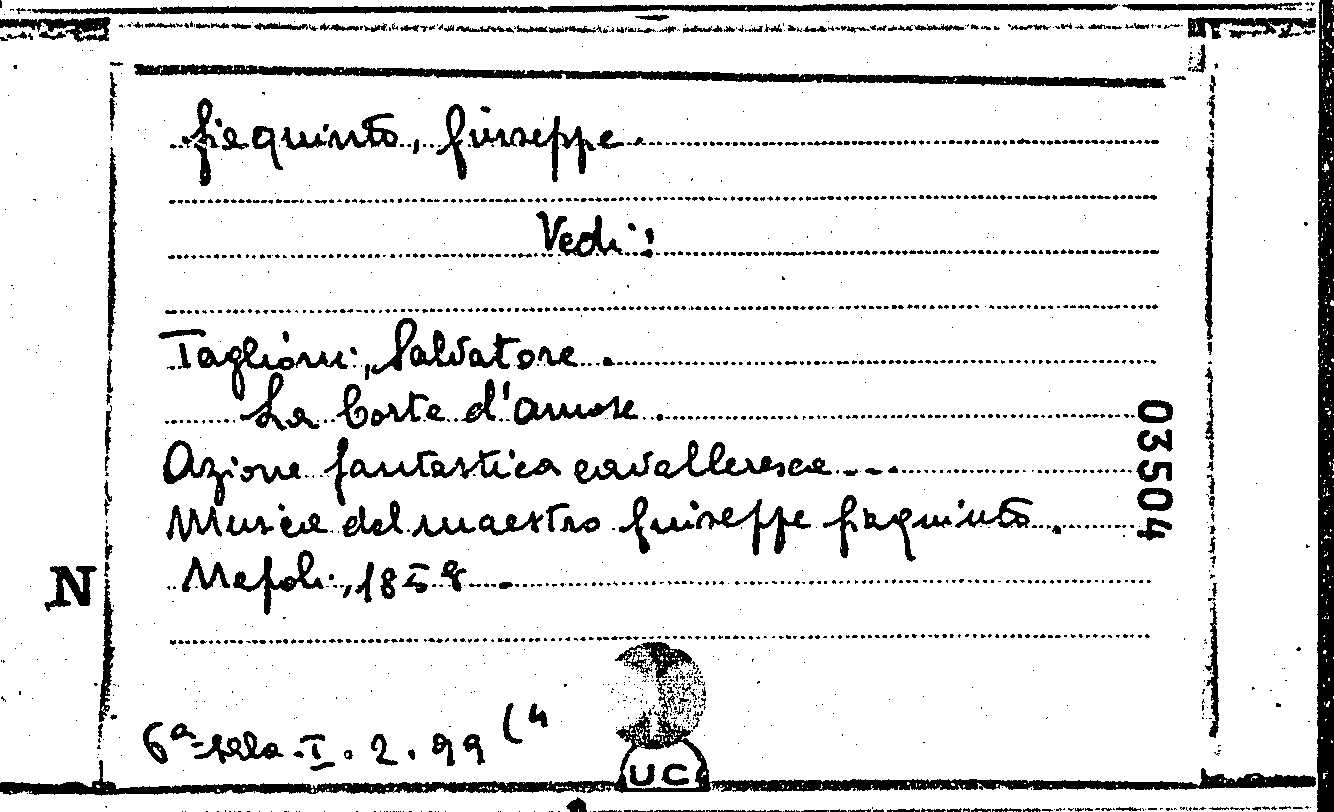 Giaquinto, Giuseppe.
Vedi:
Taglioni, Salvatore.
La Corte d'amore.
Azione fantastica cavalleresca...
Musica del maestro Giuseppe Giaquinto.
Napoli, 1858.
03504
N
6ª sala. I. 2. 99 (4
UC